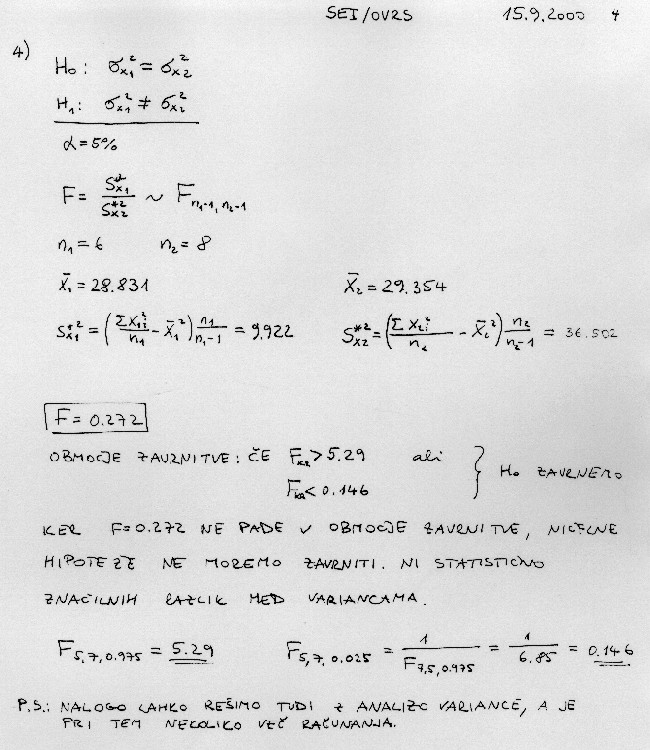 SEI/OVRS 15.9.2000 4
4)
H₀: σx₁² = σx₂²
H₁: σx₁² ≠ σx₂²
α = 5%
F = S*²x₁ / S*²x₂ ~ F n₁-1, n₂-1
n₁ = 6 n₂ = 8
X̄₁ = 28.831 X̄₂ = 29.354
S*²x₁ = (ΣX₁ᵢ²/n₁ - X̄₁²) n₁/(n₁-1) = 9.922 S*²x₂ = (ΣX₂ᵢ²/n₂ - X̄₂²) n₂/(n₂-1) = 36.502
F = 0.272
OBMOČJE ZAVRNITVE: ČE FKR > 5.29 ali
FKR < 0.146 } H₀ ZAVRNEMO
KER F = 0.272 NE PADE V OBMOČJE ZAVRNITVE, NIČELNE
HIPOTEZE NE MOREMO ZAVRNITI. NI STATISTIČNO
ZNAČILNIH RAZLIK MED VARIANCAMA.
F5,7,0.975 = 5.29 F5,7,0.025 = 1/F7,5,0.975 = 1/6.85 = 0.146
P.S.: NALOGO LAHKO REŠIMO TUDI Z ANALIZO VARIANCE, A JE
PRI TEM NEKOLIKO VEČ RAČUNANJA.